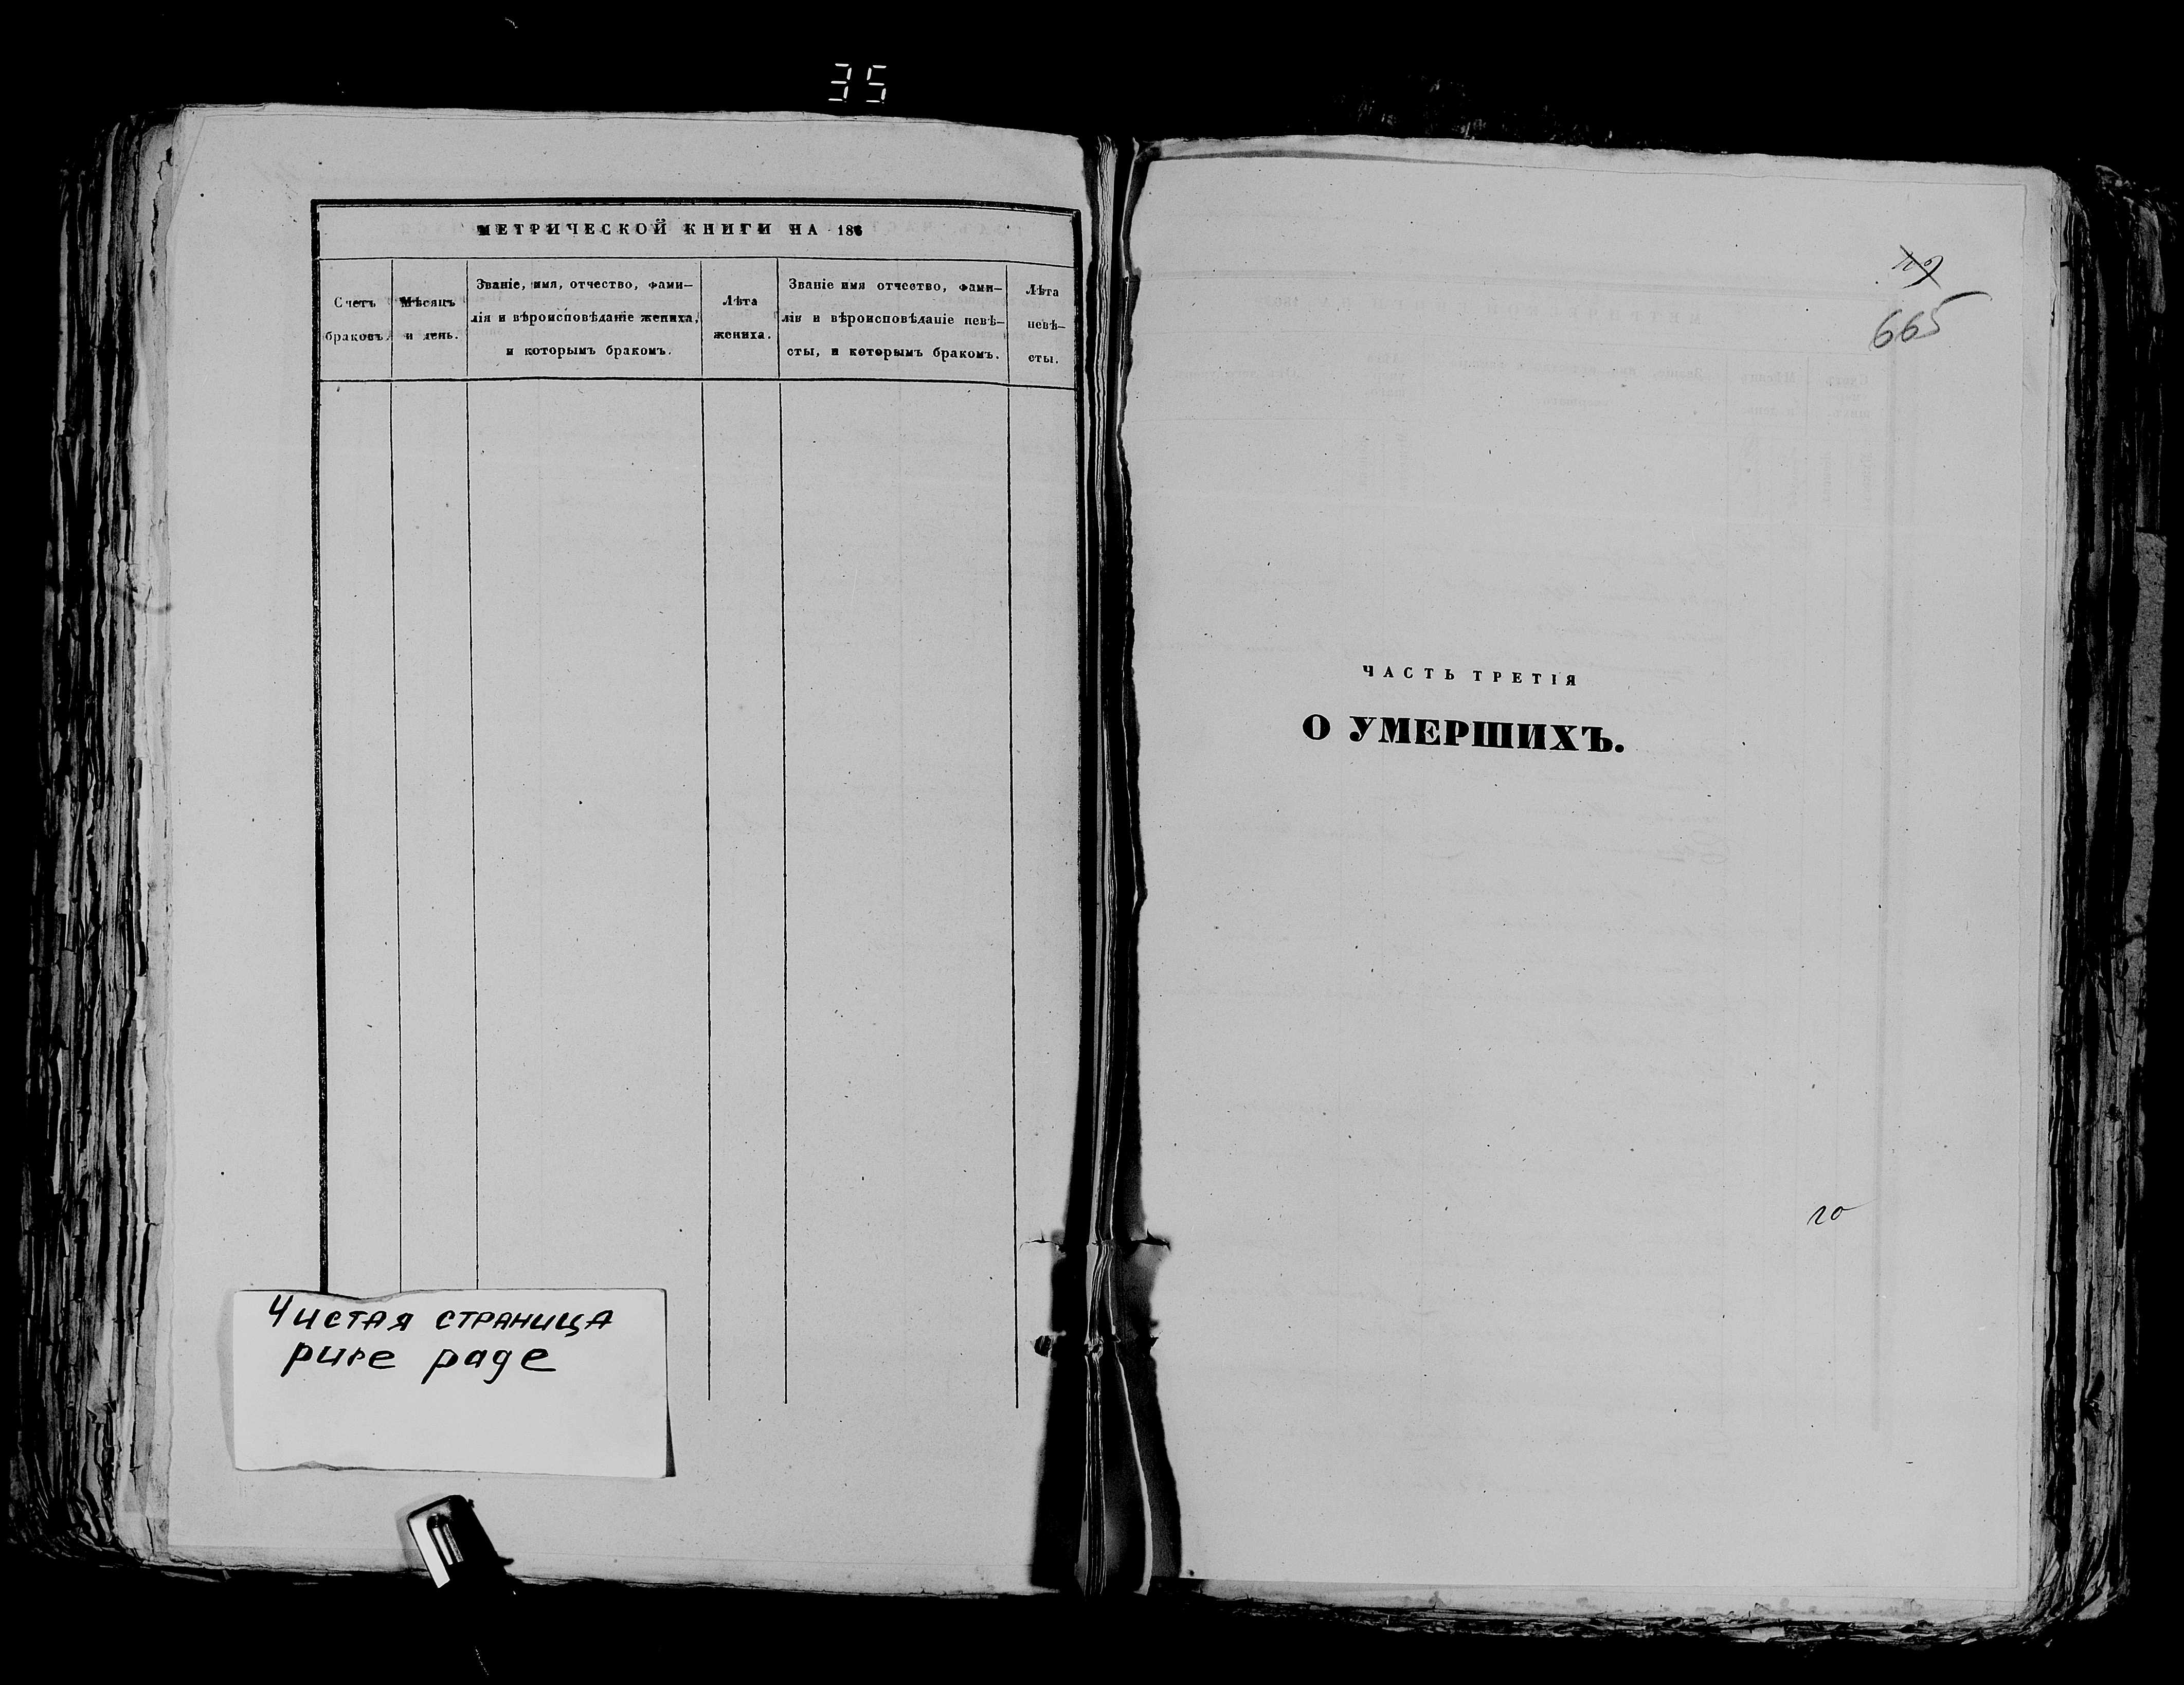 35
МЕТРИЧЕСКОЙ КНИГИ НА 186
Счетъ
браковъ.
Мѣсяцъ
и день.
Званіе, имя, отчество, фами-
лія и вѣроисповѣданіе жениха,
и которымъ бракомъ.
Лѣта
жениха.
Званіе имя отчество, фами-
лія и вѣроисповѣданіе невѣ-
сты, и которымъ бракомъ.
Лѣта
невѣ-
сты.
Чистая страница
pure page
665
ЧАСТЬ ТРЕТІЯ
О УМЕРШИХЪ.
20